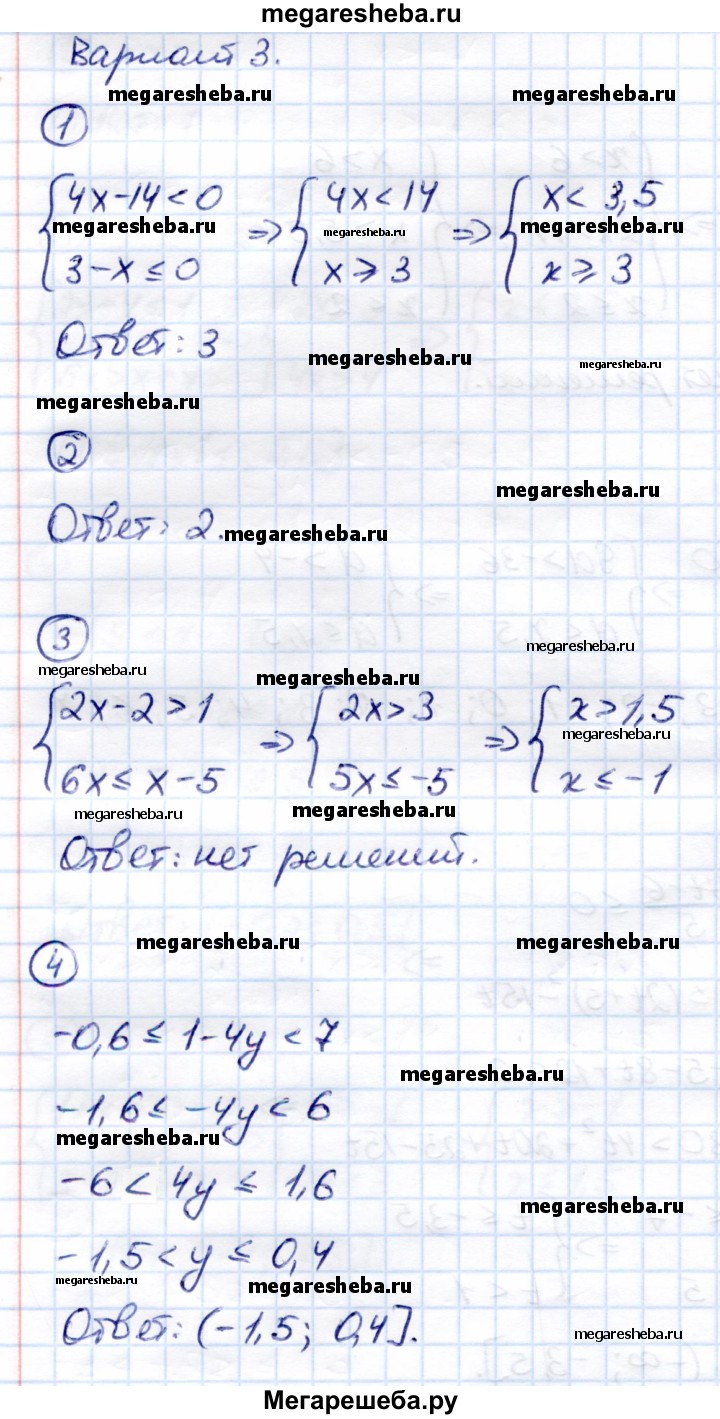 megaresheba.ru
Вариант 3.
megaresheba.ru megaresheba.ru
1
{ 4x-14<0 => { 4x<14 => { x<3,5
megaresheba.ru megaresheba.ru megaresheba.ru
3-x≤0 x≥3 x≥3
Ответ: 3
megaresheba.ru megaresheba.ru
megaresheba.ru
2
megaresheba.ru
Ответ: 2. megaresheba.ru
3
megaresheba.ru
megaresheba.ru megaresheba.ru
{ 2x-2>1 => { 2x>3 => { x>1,5
megaresheba.ru
6x≤x-5 5x≤-5 x≤-1
megaresheba.ru megaresheba.ru
Ответ: нет решений.
megaresheba.ru megaresheba.ru
4
-0,6≤1-4y<7
megaresheba.ru
-1,6≤-4y<6
megaresheba.ru
-6<4y≤1,6
megaresheba.ru
-1,5<y≤0,4
megaresheba.ru megaresheba.ru
Ответ: (-1,5; 0,4].
megaresheba.ru
Мегарешеба.ру